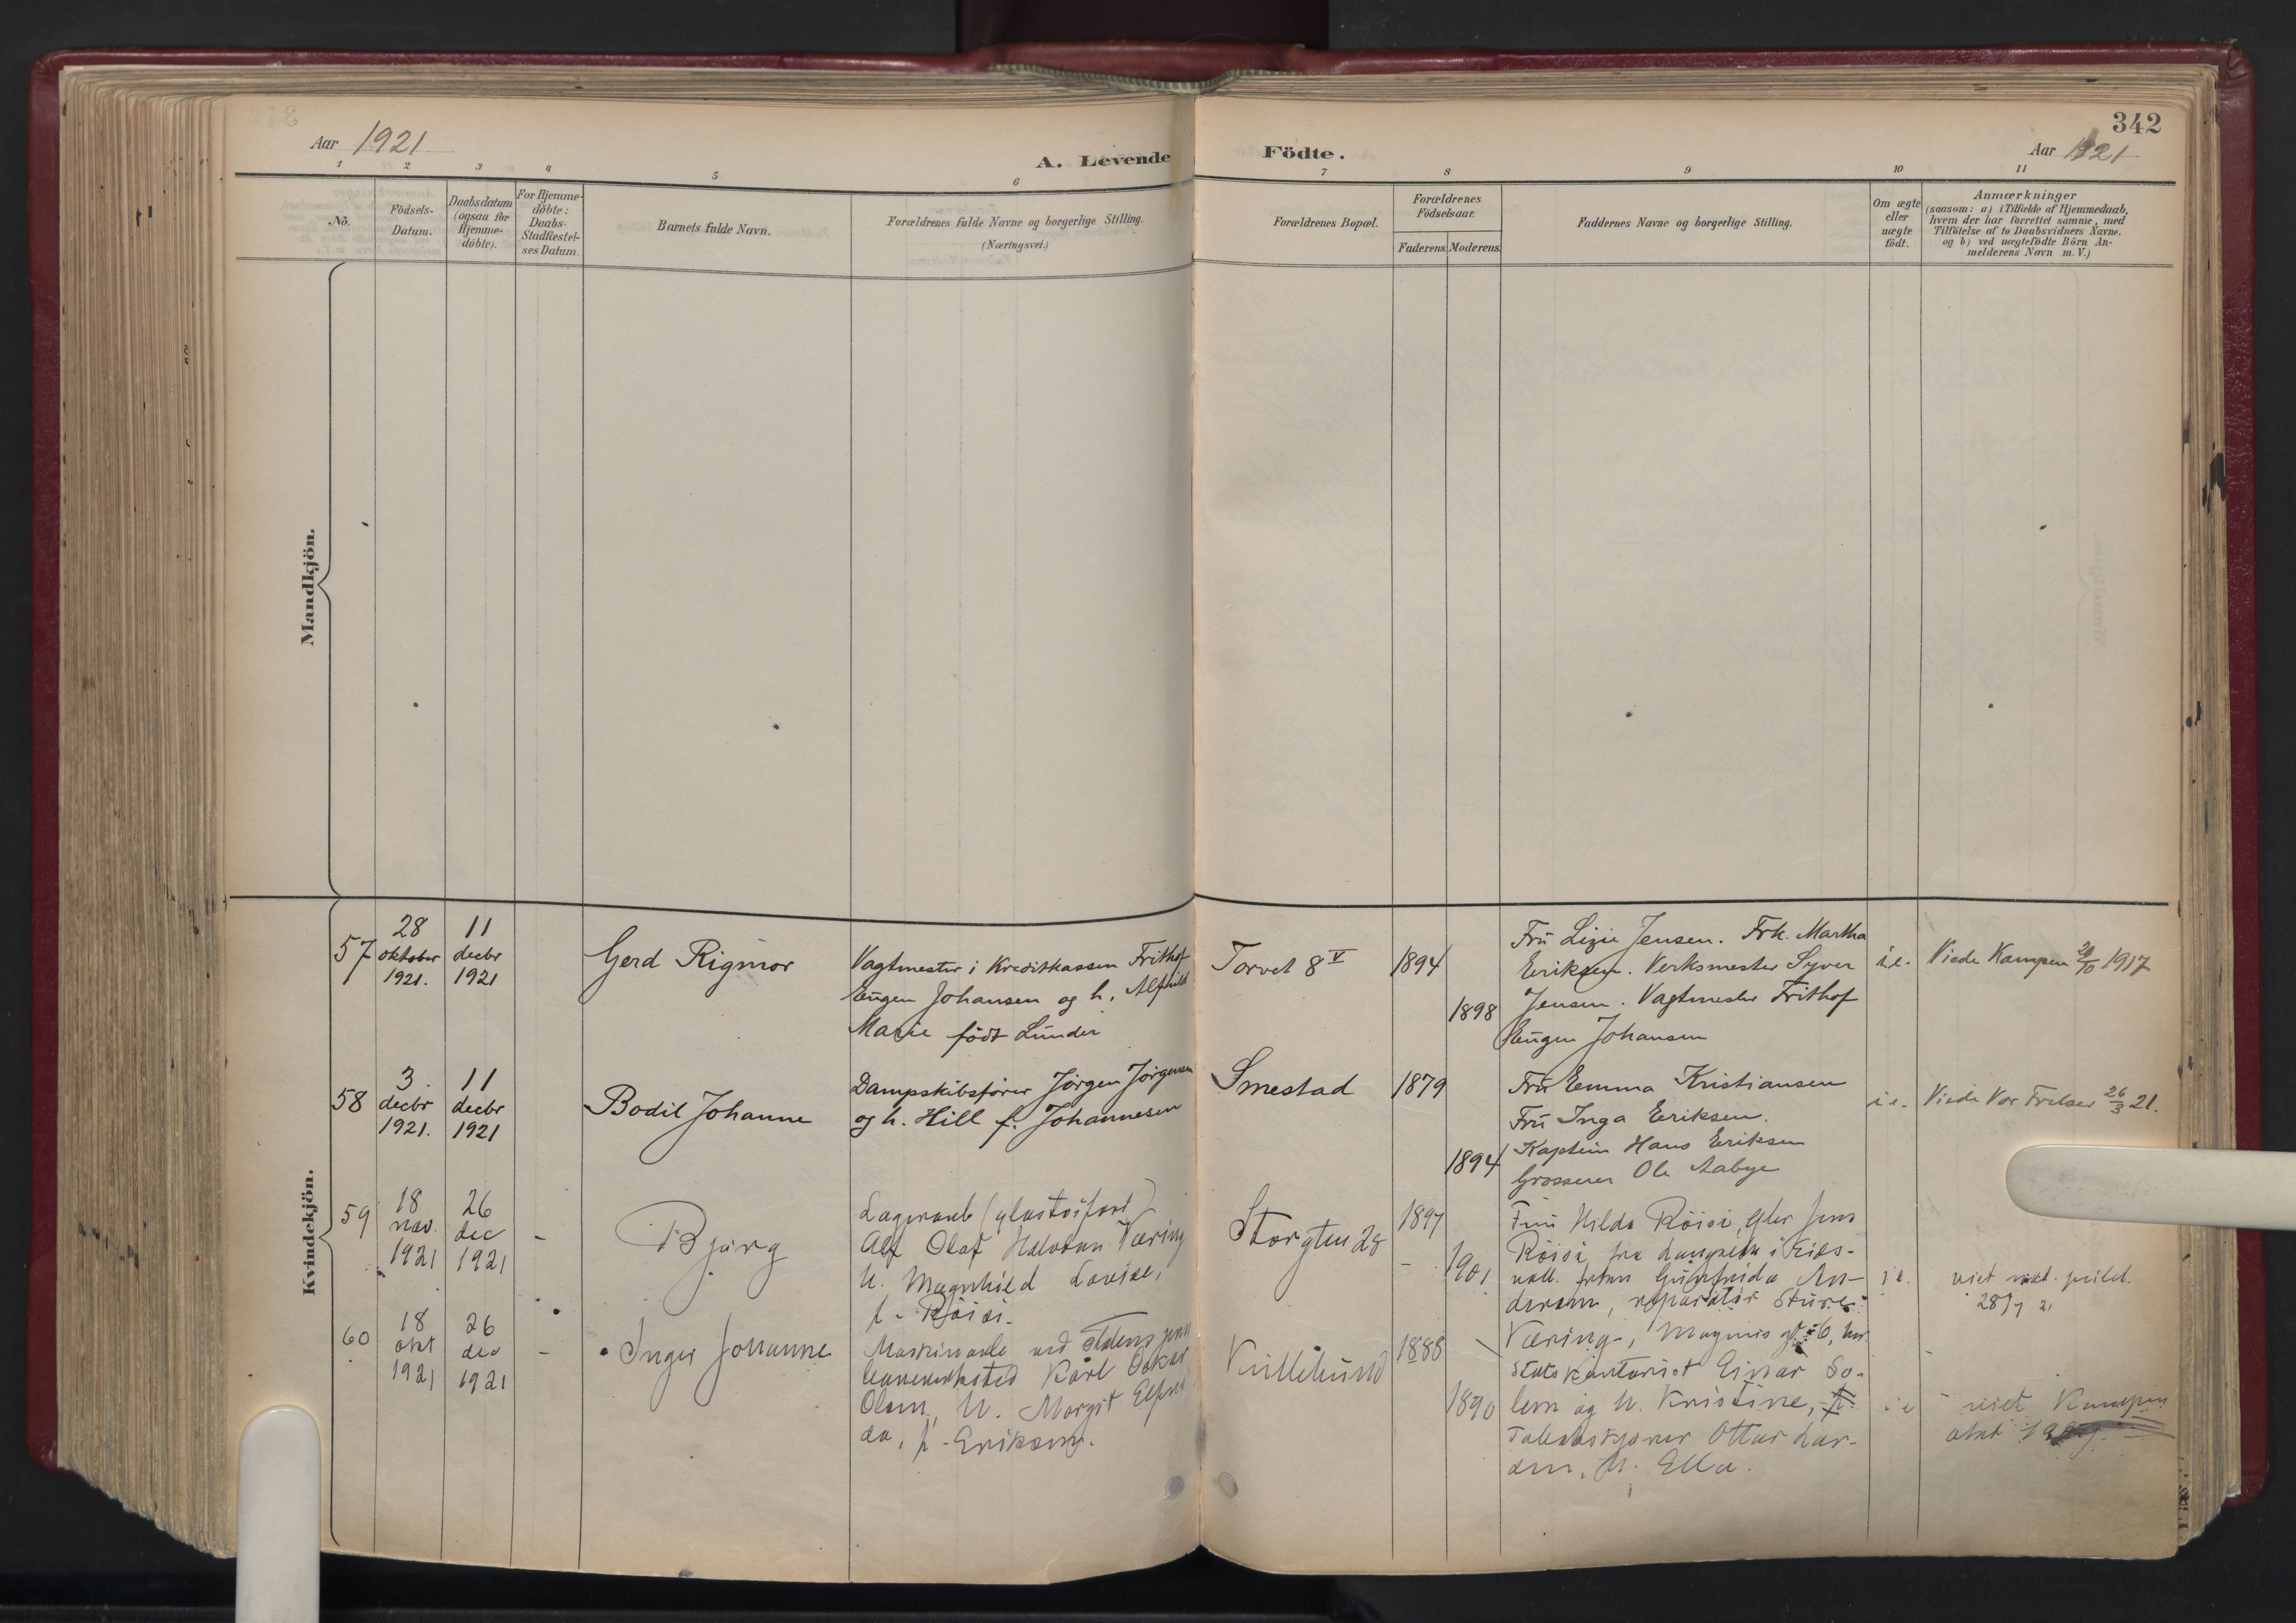 342
Aar 1921
A. Levende Födte.
Aar 1921
1 2 3 4 5 6 7 8 9 10 11
No.
Födsels-
Datum.
Daabsdatum
(ogsaa for
Hjemme-
döbte).
For Hjemme-
döbte:
Daabs-
Stadfæstel-
ses Datum.
Barnets fulde Navn.
Forældrenes fulde Navne og borgerlige Stilling.
(Næringsvei.)
Forældrenes Bopæl.
Forældrenes
Födselsaar.
Faderens. Moderens.
Faddernes Navne og borgerlige Stilling.
Om ægte
eller
uægte
födt.
Anmærkninger
(saasom: a) i Tilfælde af Hjemmedaab,
hvem der har forrettet samme, med
Tilföielse af to Daabsvidners Navne.
og b) ved uægtefödte Börn An-
melderens Navn m. V.)
Mandkjön.
Kvindekjön.
57
28
oktober
1921.
11
decbr
1921
Gerd Rigmor
Vagtmester i Kreditkassen Frithof
Eugen Johansen og h. Alfhild
Marie født Lunder
Torvet 8 V
1894
1898
Fru Lizie Jensen. Frk. Martha
Eriksen. Verksmester Syver
Jensen. Vagtmester Frithof
Eugen Johansen
i.e.
Viede Kampen 20/10 1917
58
3.
decbr
1921.
11
decbr
1921
Bodil Johanne
Dampskibsfører Jørgen Jørgensen
og h. Hill f. Johannesen
Smestad
1879
1894
Fru Emma Kristiansen
Fru Inga Eriksen.
Kaptein Hans Eriksen
Grosserer Ole Aabye
i.e.
Viede Vor Frelser 26/3 21.
59
18
nov.
1921
26
dec
1921
-
Bjørg
Lagerarb
Alf Olaf Halvdan Væring
h. Magnhild Lovise,
f. Røisi.
Storgten 28
1897
1901
Fru Hilda Røisi, Jens
Røisi, fra i Eids-
voll. An-
dersen, reparatør Sture
Væring, Magnus gt 6, hr.
i.e.
viet
28/7 21
60
18
okt
1921
26
dec
1921
-
Inger Johanne
Maskinarb ved
Karl Oskar
Olsen, h. Margit
da, f. Eriksen.
1888
1890
Statskontorist Einar So-
lem og h. Kristine,
Ottar Lar-
sen, h. Ella.
i e
viet Kampen